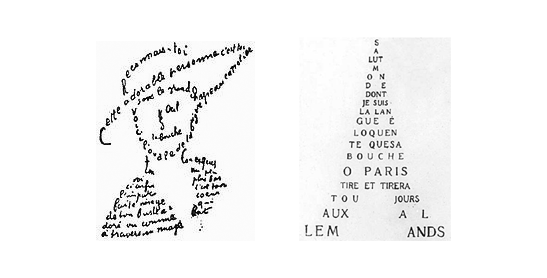 Reconnais-toi
Cette adorable personne c'est toi
Sous le grand chapeau canotier
Œil
la bouche
l'ovale de ta
cou exquis
voi
ci enfin
l'imparfai
te image
de ton buste a
doré vu comme
à travers un nuage
un peu
plus bas
c'est ton
coeur
qui
bat
S
A
LUT
M
O N
D E
DONT
JE SUIS
LA LAN
GUE É
LOQUEN
TE QUESA
BOUCHE
O PARIS
TIRE ET TIRERA
TOU JOURS
AUX AL
LEM ANDS